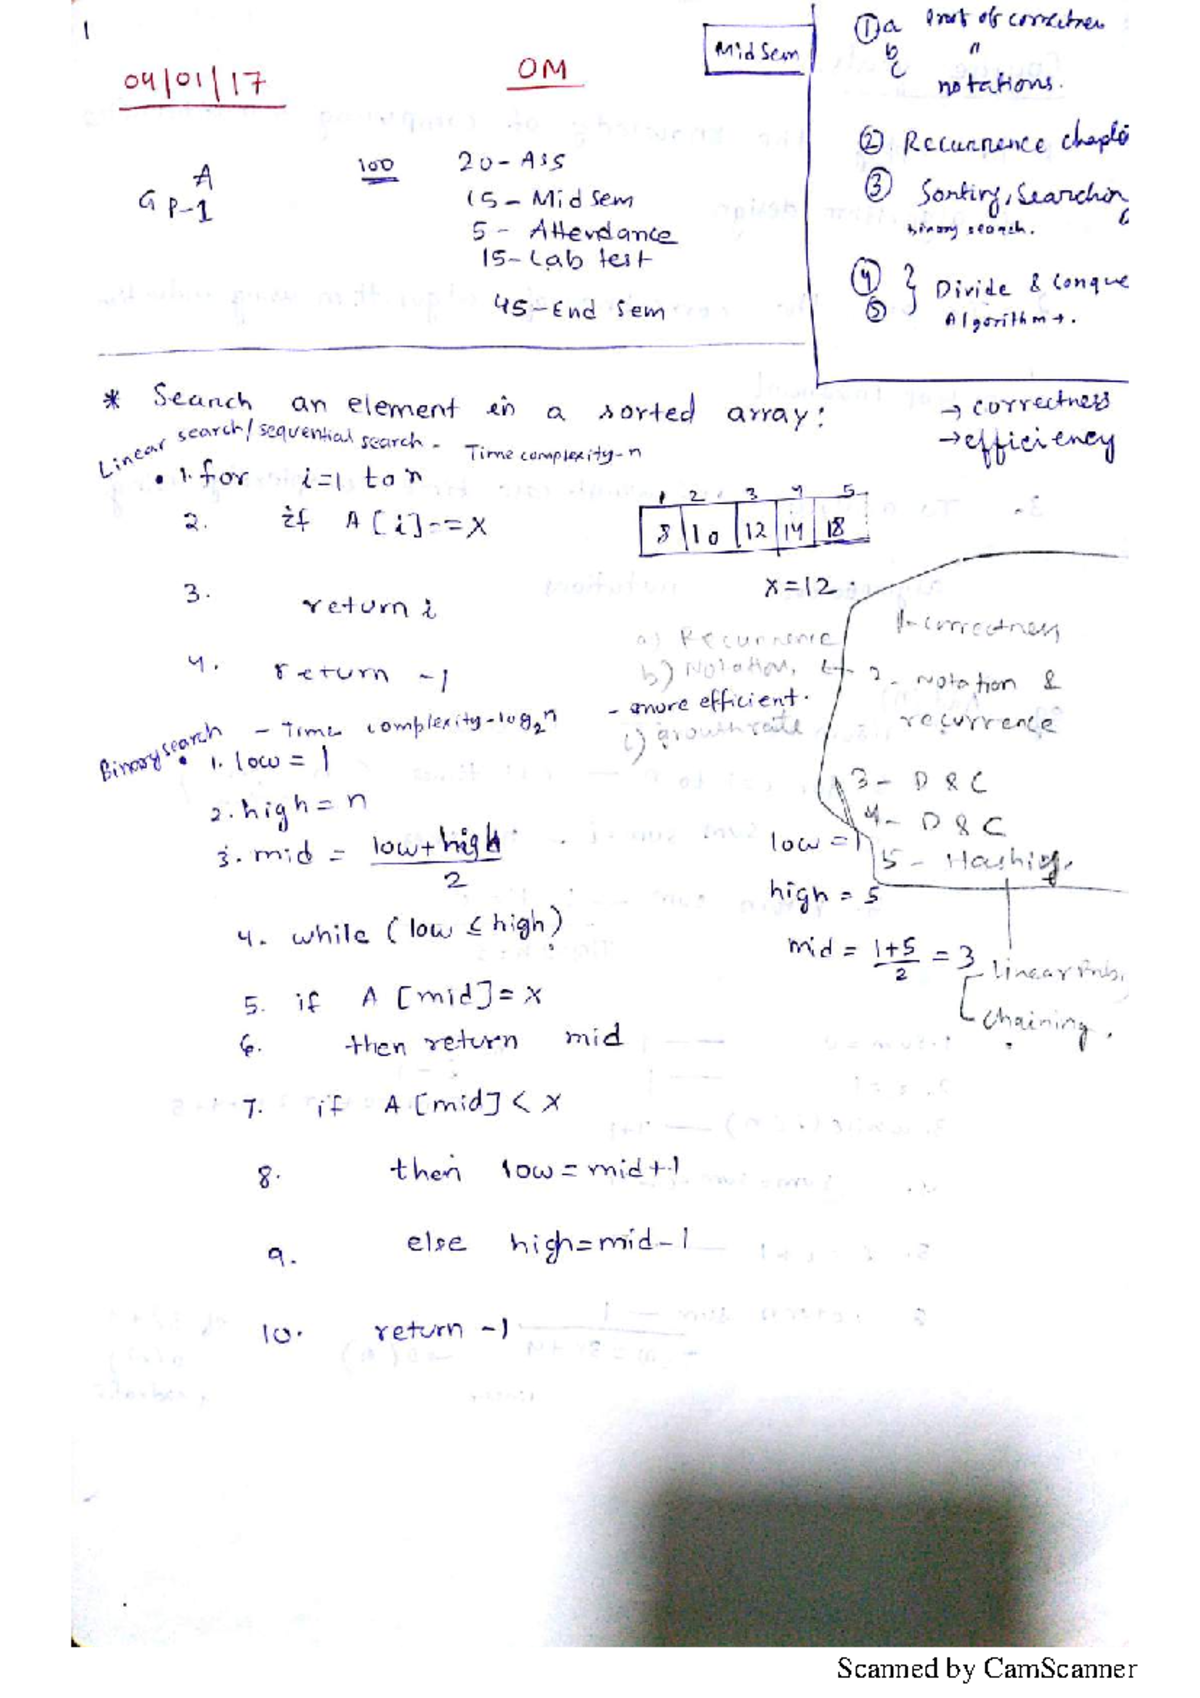 1
04/01/17
OM
A
G P-1
100
20 - Ass
15 - Mid Sem
5 - Attendance
15 - Lab test
45 - End Sem
Mid Sem
① a Proof of correctness
b "
c notations.
② Recurrence
③ Sorting, Searching
binary search.
④
⑤ } Divide & Conque
Algorithm
* Search an element in a sorted array:
→ correctness
→ efficiency
Linear search/sequential search - Time complexity - n
• 1. for i=1 to n
2. if A[i]==X
3. return i
4. return -1
1 2 3 4 5
8 10 12 14 18
X=12
a) Recurrence
b) Notation,
- more efficient.
c) growth rate
1- correctness
2 - Notation &
recurrence
3 - D & C
4 - D & C
5 - Hashing.
Linear
chaining.
Binary search - Time complexity - log₂n
• 1. low = 1
2. high = n
3. mid = low+high / 2
4. while (low ≤ high)
5. if A[mid]=X
6. then return mid
7. if A[mid]<X
8. then low=mid+1
9. else high=mid-1
10. return -1
low = 1
high = 5
mid = 1+5 / 2 = 3
Scanned by CamScanner